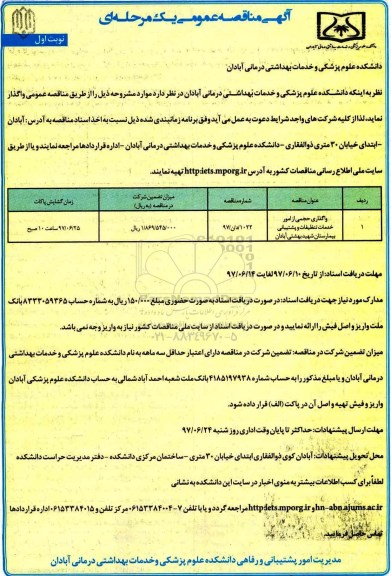 آگهی مناقصه عمومی یک مرحله‌ای
نوبت اول
دانشکده علوم پزشکی و خدمات بهداشتی درمانی آبادان
نظر به اینکه دانشکده علوم پزشکی و خدمات بهداشتی درمانی آبادان در نظر دارد موارد مشروحه ذیل را از طریق مناقصه عمومی واگذار
نماید، لذا از کلیه شرکت های واجد شرایط دعوت به عمل می آید وفق برنامه زمانبندی شده ذیل نسبت به اخذ اسناد مناقصه به آدرس: آبادان
-ابتدای خیابان ۳۰ متری ذوالفقاری -دانشکده علوم پزشکی و خدمات بهداشتی درمانی آبادان -اداره قراردادها مراجعه نمایند و یا از طریق
سایت ملی اطلاع رسانی مناقصات کشور به آدرس http:iets.mporg.ir تهیه نمایند.
ردیف عنوان مناقصه شماره مناقصه میزان تضمین شرکت در مناقصه (به ریال) زمان گشایش پاکات
۱ واگذاری حجمی از امور خدمات تنظیفات و پشتیبانی بیمارستان شهید بهشتی آبادان ۹۷/ ۱/۸۶۹/۵۴۵/۰۰۰ ریال ۹۷/۰۶/۲۵ ساعت ۱۰ صبح
مهلت دریافت اسناد: از تاریخ ۹۷/۰۶/۱۰ لغایت ۹۷/۰۶/۱۴
مدارک مورد نیاز جهت دریافت اسناد: در صورت دریافت اسناد به صورت حضوری مبلغ ۱۵۰/۰۰۰ ریال به شماره حساب ۸۳۳۳۰۵۹۳۶۵ بانک
ملت واریز و اصل فیش را ارائه نمایید و در صورت دریافت اسناد از سایت ملی مناقصات کشور نیاز به واریز وجه نمی باشد.
میزان تضمین شرکت در مناقصه: تضمین شرکت در مناقصه دارای اعتبار حداقل سه ماهه به نام دانشکده علوم پزشکی و خدمات بهداشتی
درمانی آبادان و یا مبلغ مذکور را به حساب شماره ۴۱۸۵۱۹۷۹۳۸ بانک ملت شعبه احمد آباد شمالی به حساب دانشکده علوم پزشکی آبادان
واریز و فیش تهیه و اصل آن در پاکت (الف) قرار داده شود.
مهلت ارسال پیشنهادات: حداکثر تا پایان وقت اداری روز شنبه ۹۷/۰۶/۲۴
محل تحویل پیشنهادات: آبادان کوی ذوالفقاری ابتدای خیابان ۳۰ متری -ساختمان مرکزی دانشکده - دفتر مدیریت حراست دانشکده
لطفاً برای کسب اطلاعات بیشتر به منوی اخبار در سایت این دانشکده به نشانی
hn-abn.ajums.ac.ir و http:iets.mporg.ir مراجعه گردد و یا با تلفن ۷-۰۶۱۵۳۳۸۴۰۰۴ مرکز تلفن و ۰۶۱۵۳۳۸۴۰۱۵ اداره قراردادها
تماس حاصل فرمایید.
مدیریت امور پشتیبانی و رفاهی دانشکده علوم پزشکی و خدمات بهداشتی درمانی آبادان
۰۲۱-۸۸۳۴۹۶۷۰-۵